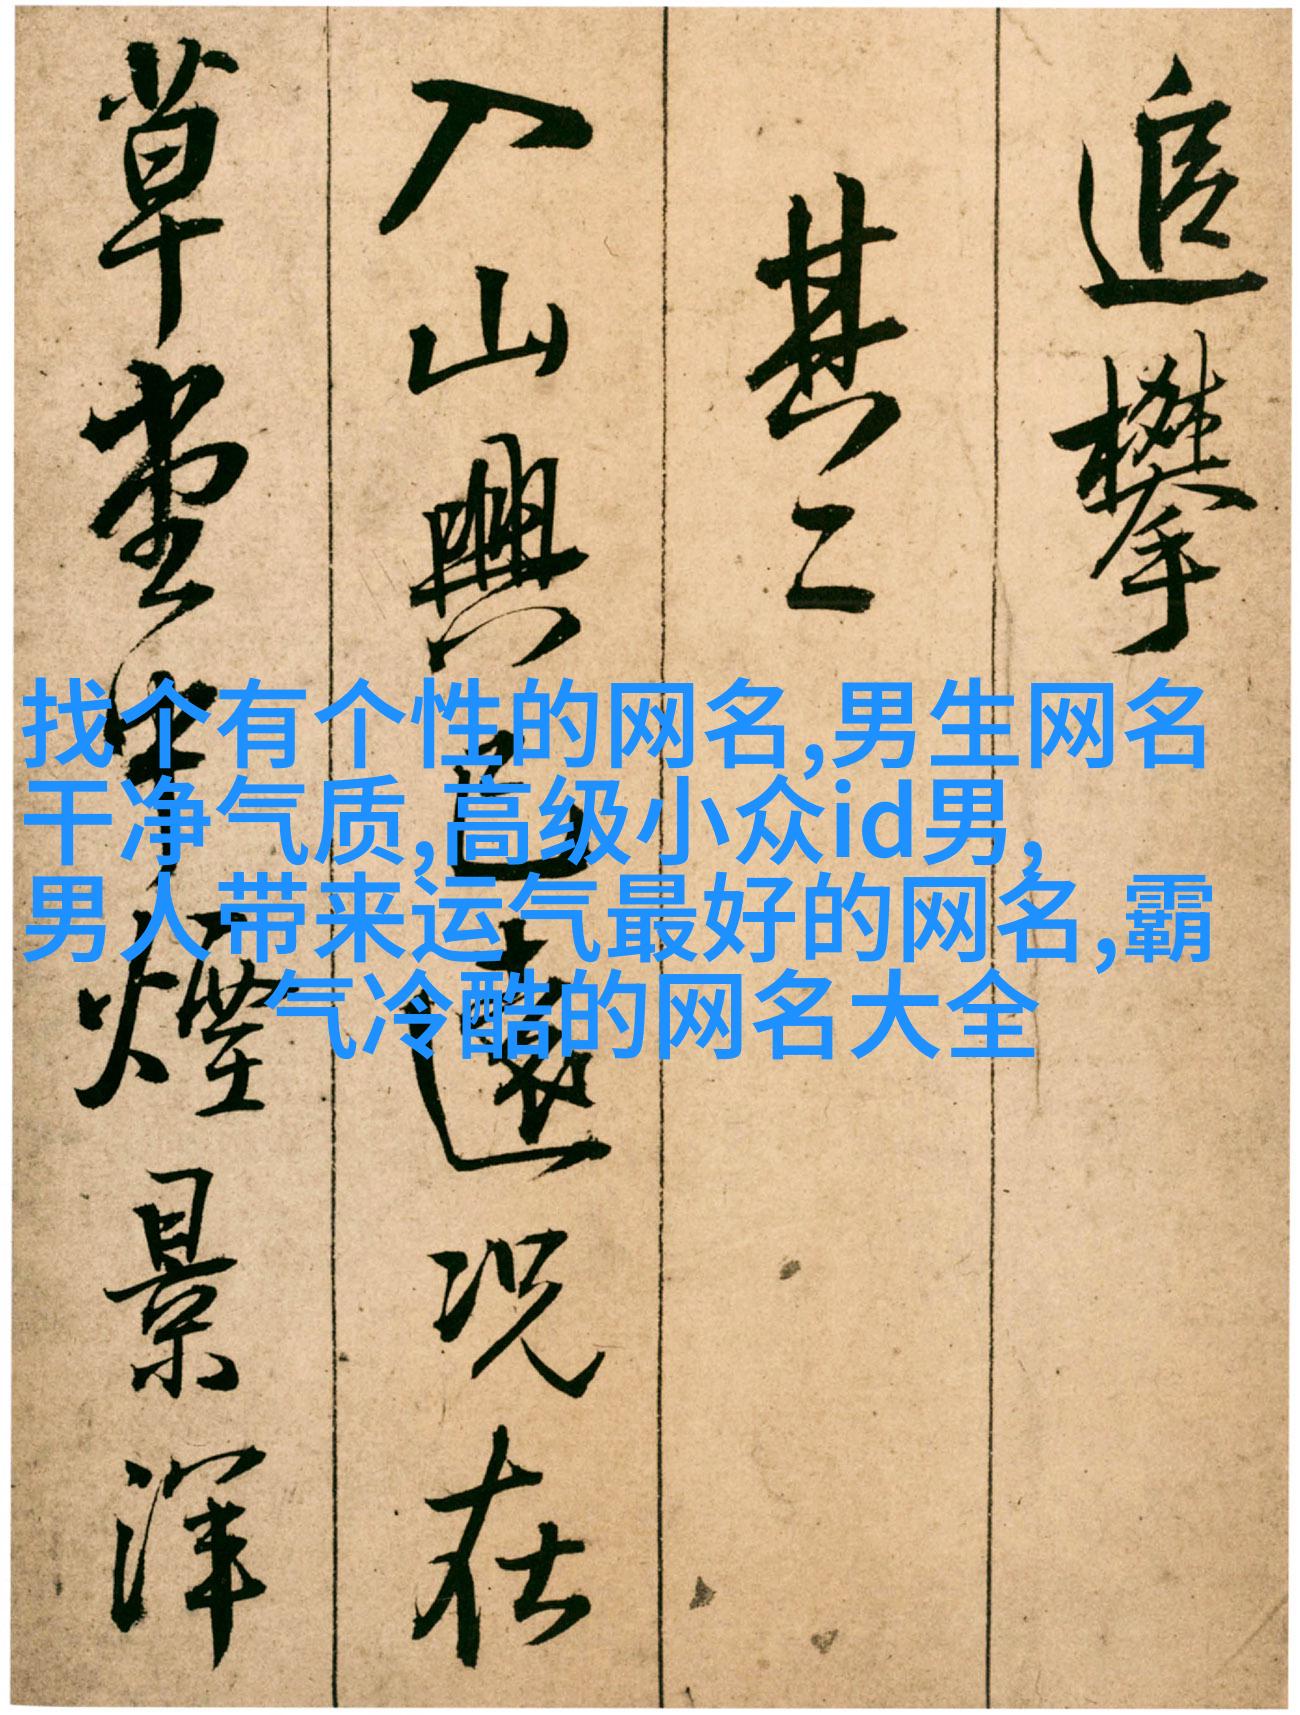 追攀
其二
入山興已遠況在
草堂中煙景渾
找个有个性的网名,男生网名
干净气质,高级小众id男,
男人带来运气最好的网名,霸
气冷酷的网名大全